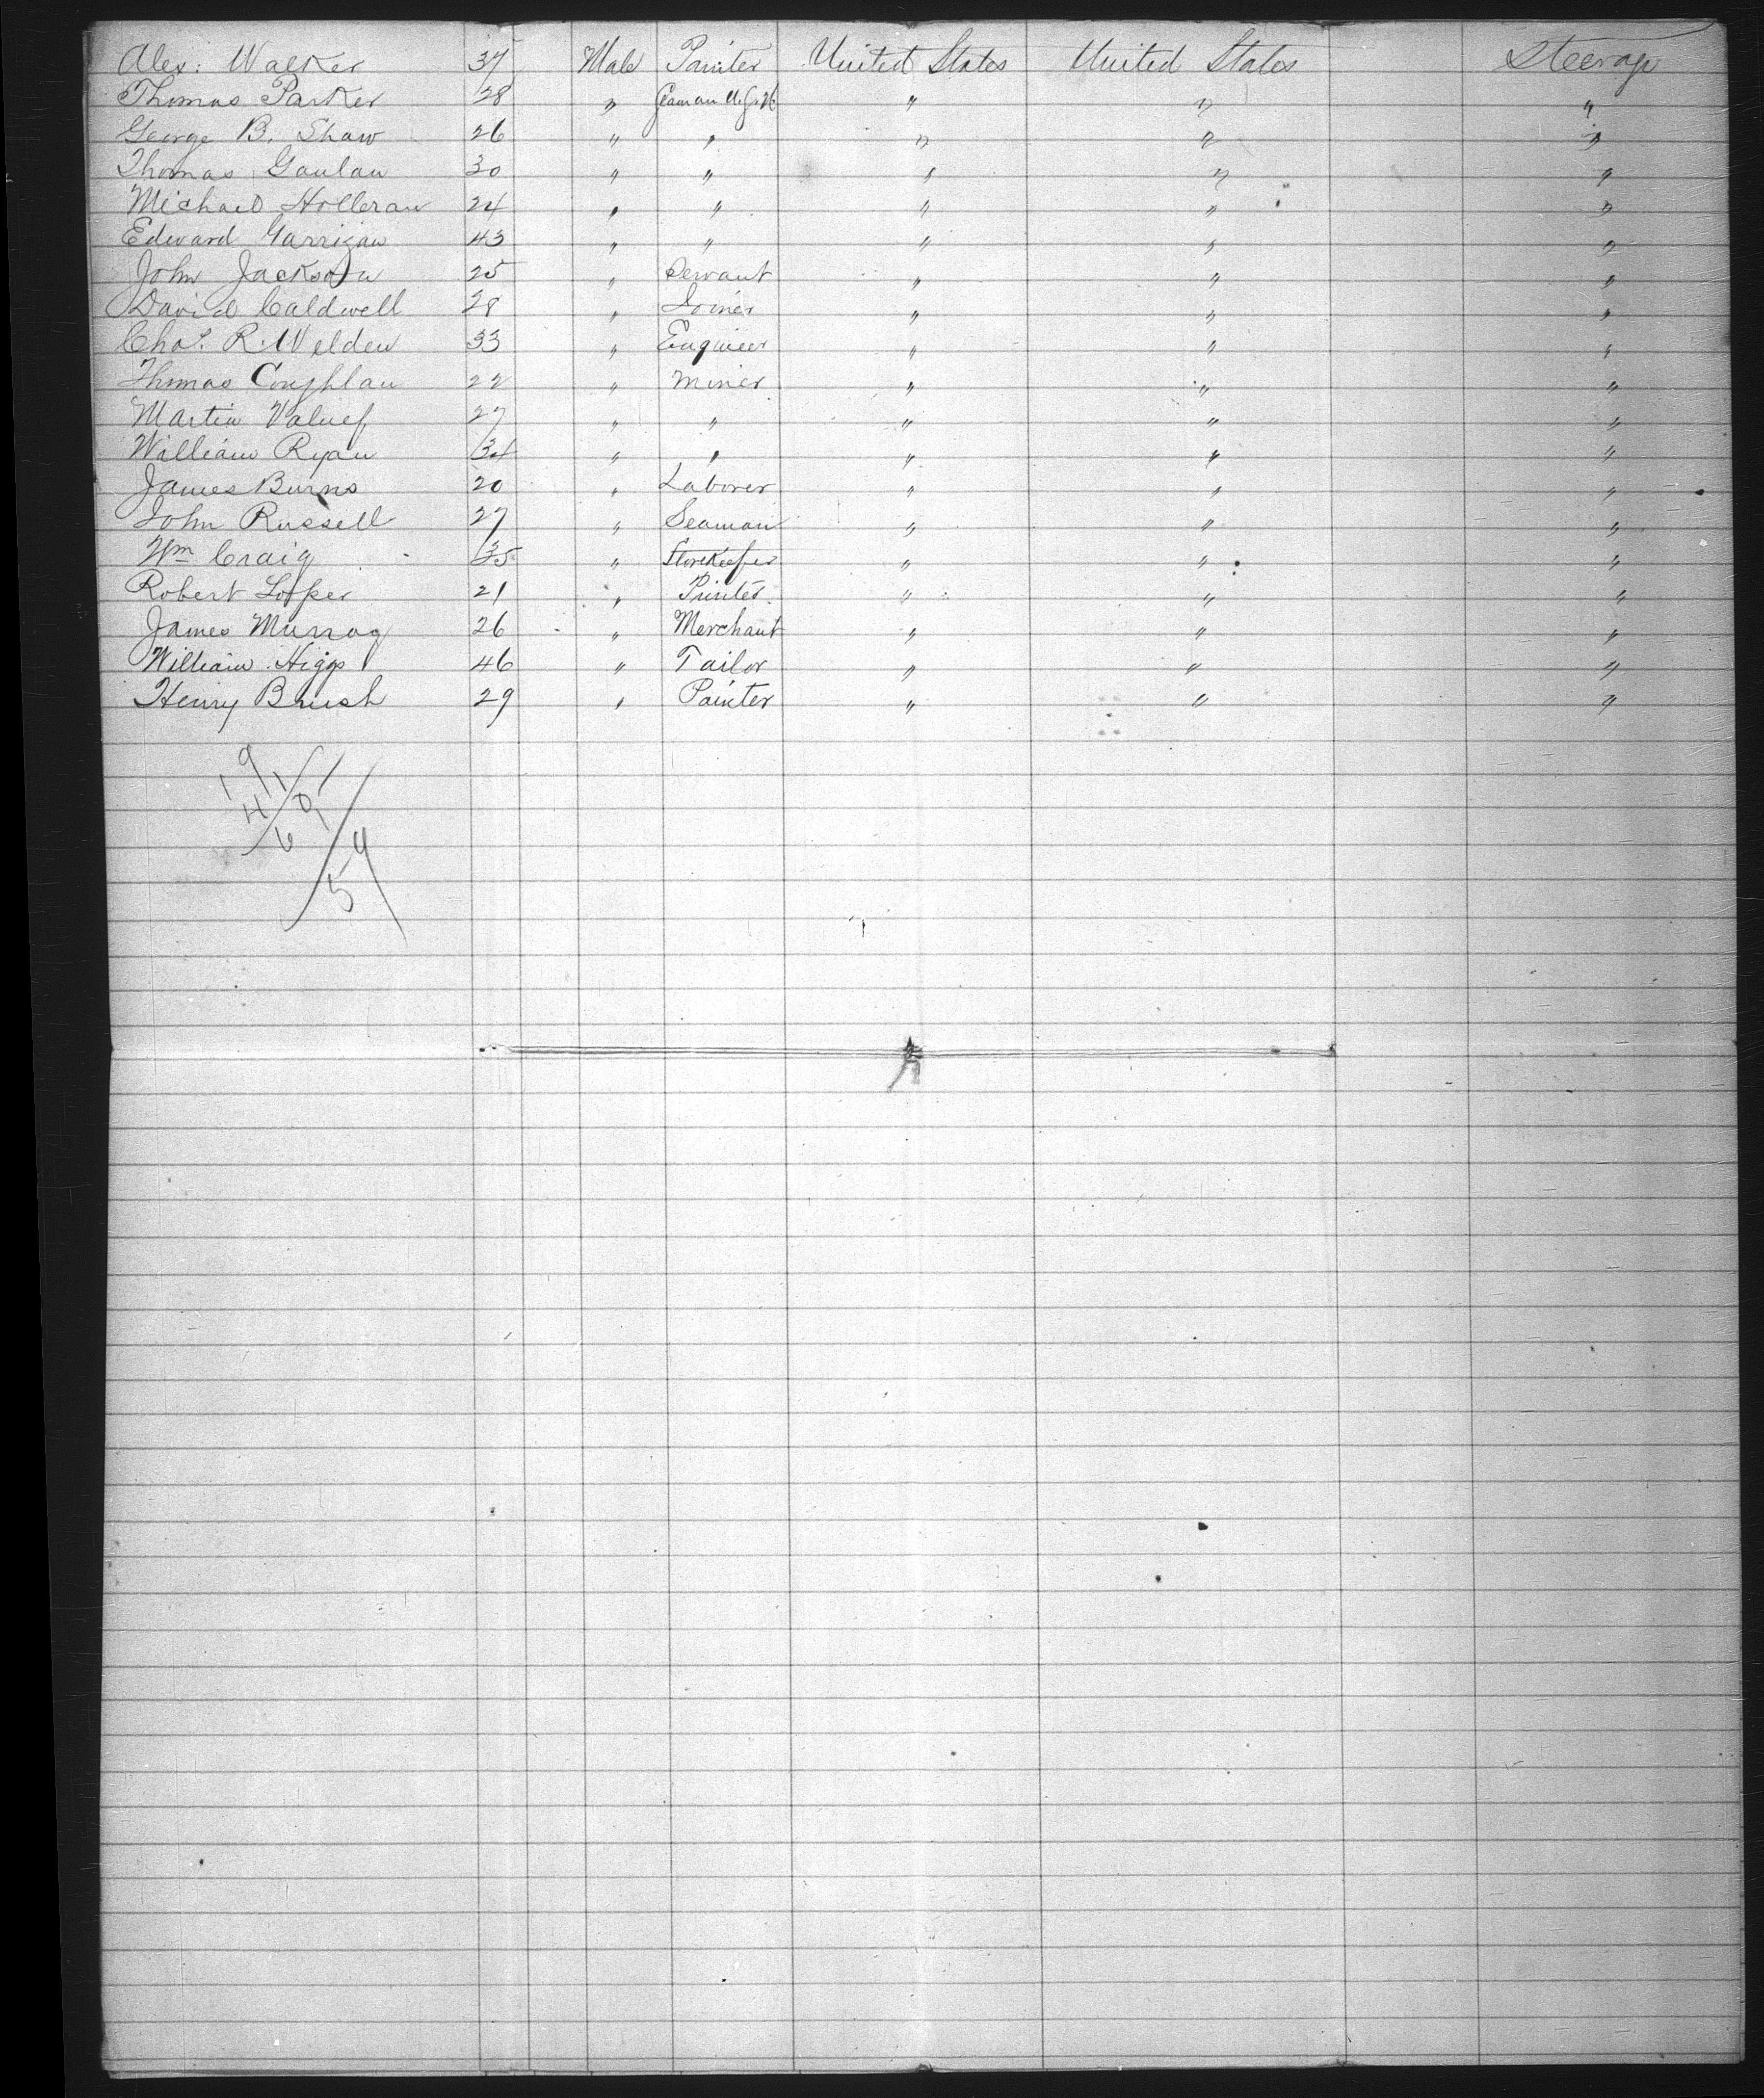 Alex: Walker 37 Male Painter United States United States Steerage
Thomas Parker 28 " Seaman U.S.N. " " "
George B. Shaw 26 " " " " "
Thomas Gaulan 30 " " " " "
Michael Holleran 24 " " " " "
Edward Garrigan 43 " " " " "
John Jackson 25 " Servant " " "
David Caldwell 28 " Joiner " " "
Chas. R. Welden 33 " Engineer " " "
Thomas Coughlan 22 " Miner " " "
Martin 27 " " " " "
William Ryan 34 " " " " "
James Burns 20 " Laborer " " "
John Russell 27 " Seaman " " "
Wm Craig 35 " Storekeeper " " "
Robert Loper 21 " Printer " " "
James Murray 26 " Merchant " " "
William Higgs 46 " Tailor " " "
Henry Brush 29 " Painter " " "